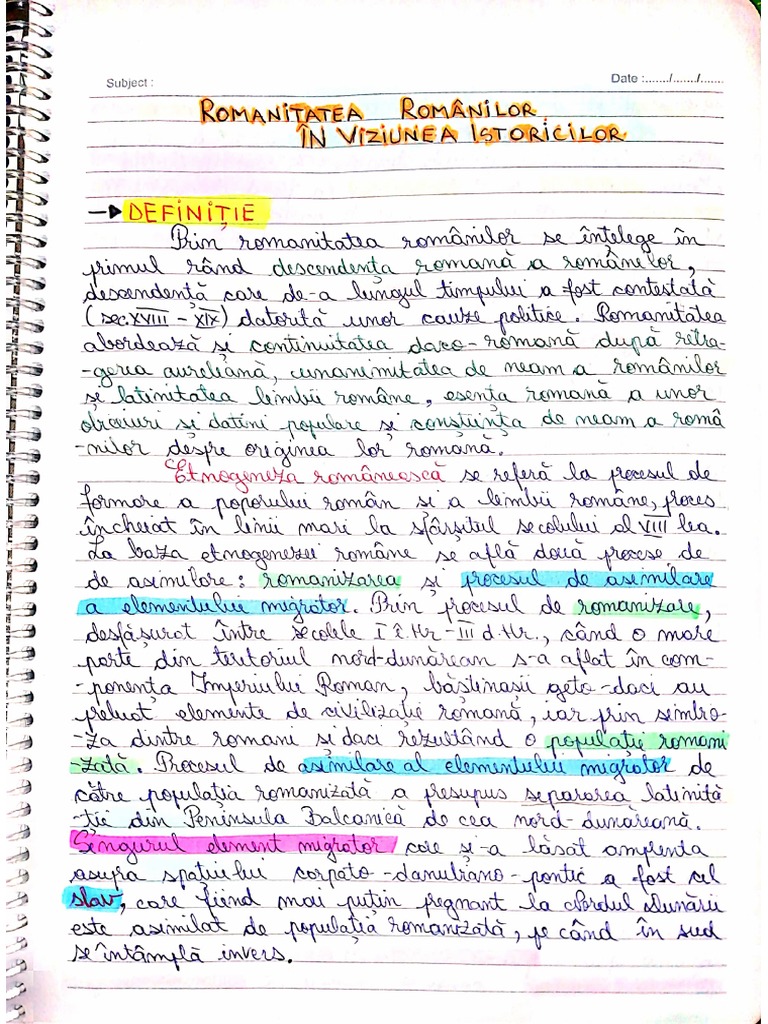 Subject :
Date :......./......./.......
ROMANITATEA ROMÂNILOR
ÎN VIZIUNEA ISTORICILOR
→ DEFINIȚIE
Prin romanitatea românilor se înțelege în
primul rând descendența romană a românilor,
descendență care de-a lungul timpului a fost contestată
(sec XVIII - XIX) datorită unor cauze politice. Romanitatea
abordează și continuitatea daco-romană după retra-
-gerea aureliană, unanimitatea de neam a românilor
și latinitatea limbii române, esența romană a unor
obiceiuri și datini populare și conștiința de neam a româ
-nilor despre originea lor romană.
Etnogeneza românească se referă la procesul de
formare a poporului român și a limbii române, proces
încheiat în linii mari la sfârșitul secolului al VIII lea.
La baza etnogenezei române se află două procese de
de asimilare: romanizarea și procesul de asimilare
a elementului migrator. Prin procesul de romanizare,
desfășurat între secolele I î.Hr - III d.Hr., când o mare
parte din teritoriul nord-dunărean s-a aflat în com-
-ponența Imperiului Roman, băștinașii geto-daci au
preluat elemente de civilizație romană, iar prin simbio-
-za dintre romani și daci rezultând o populație romani
-zată. Procesul de asimilare al elementului migrator de
către populația romanizată a presupus separarea latinită
-ții din Peninsula Balcanică de cea nord-dunăreană.
Singurul element migrator care și-a lăsat amprenta
asupra spațiului carpato-danubiano-pontic a fost cel
slav, care fiind mai puțin pregnant la nordul Dunării
este asimilat de populația romanizată, pe când în sud
se întâmplă invers.